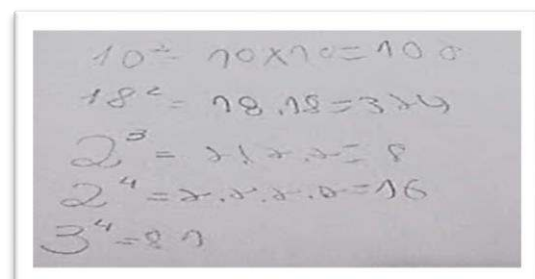 10² = 10x10=100
18² = 18.18=324
2³ = 2.2.2=8
2⁴ =2.2.2.2=16
3⁴=81